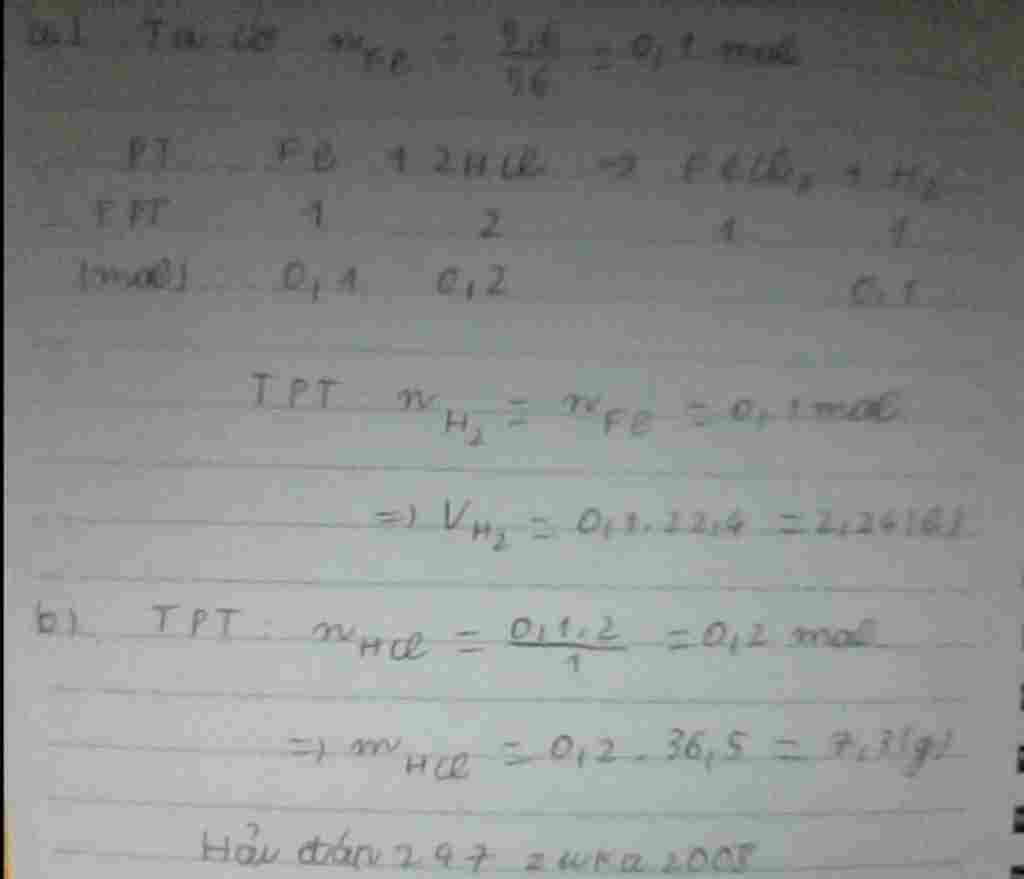 a) Ta có n Fe = 5,6/56 = 0,1 mol
PT Fe + 2HCl → FeCl₂ + H₂
TPT 1 2 1 1
(mol) 0,1 0,2 0,1
TPT n H₂ = n Fe = 0,1 mol
=) V H₂ = 0,1.22,4 = 2,24 (l)
b) TPT: n HCl = 0,1.2/1 = 0,2 mol
=) m HCl = 0,2.36,5 = 7,3 (g)
Hỏi đán 247 2008